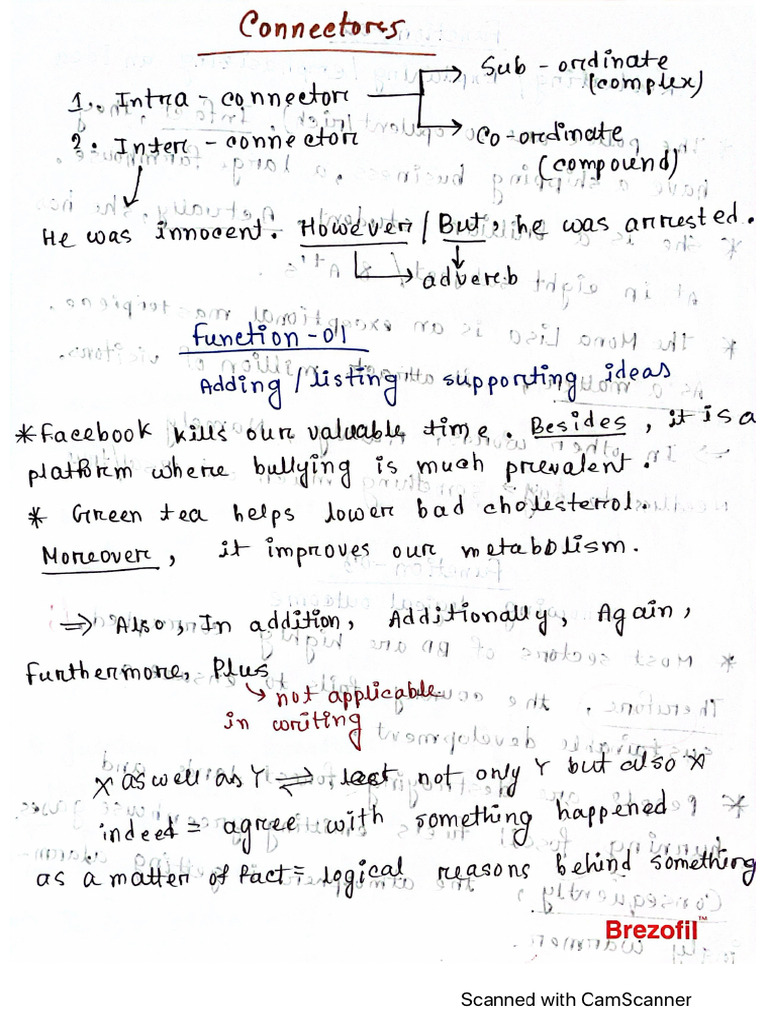 Connectores
1. Intra - connector
Sub - ordinate
(complex)
2. Inter - connector
Co-ordinate
(compound)
He was innocent. However / But, he was arrested.
adverb
Function - 01
Adding / listing supporting ideas
* Facebook kills our valuable time. Besides, it is a
platform where bullying is much prevalent.
* Green tea helps lower bad cholesterol.
Moreover, it improves our metabolism.
⇒ Also, In addition, Additionally, Again,
Furthermore, Plus
↳ not applicable
in writing
X as well as Y ⇌ not only Y but also X
indeed = agree with something happened
as a matter of fact = logical reasons behind something
Brezofil™
Scanned with CamScanner